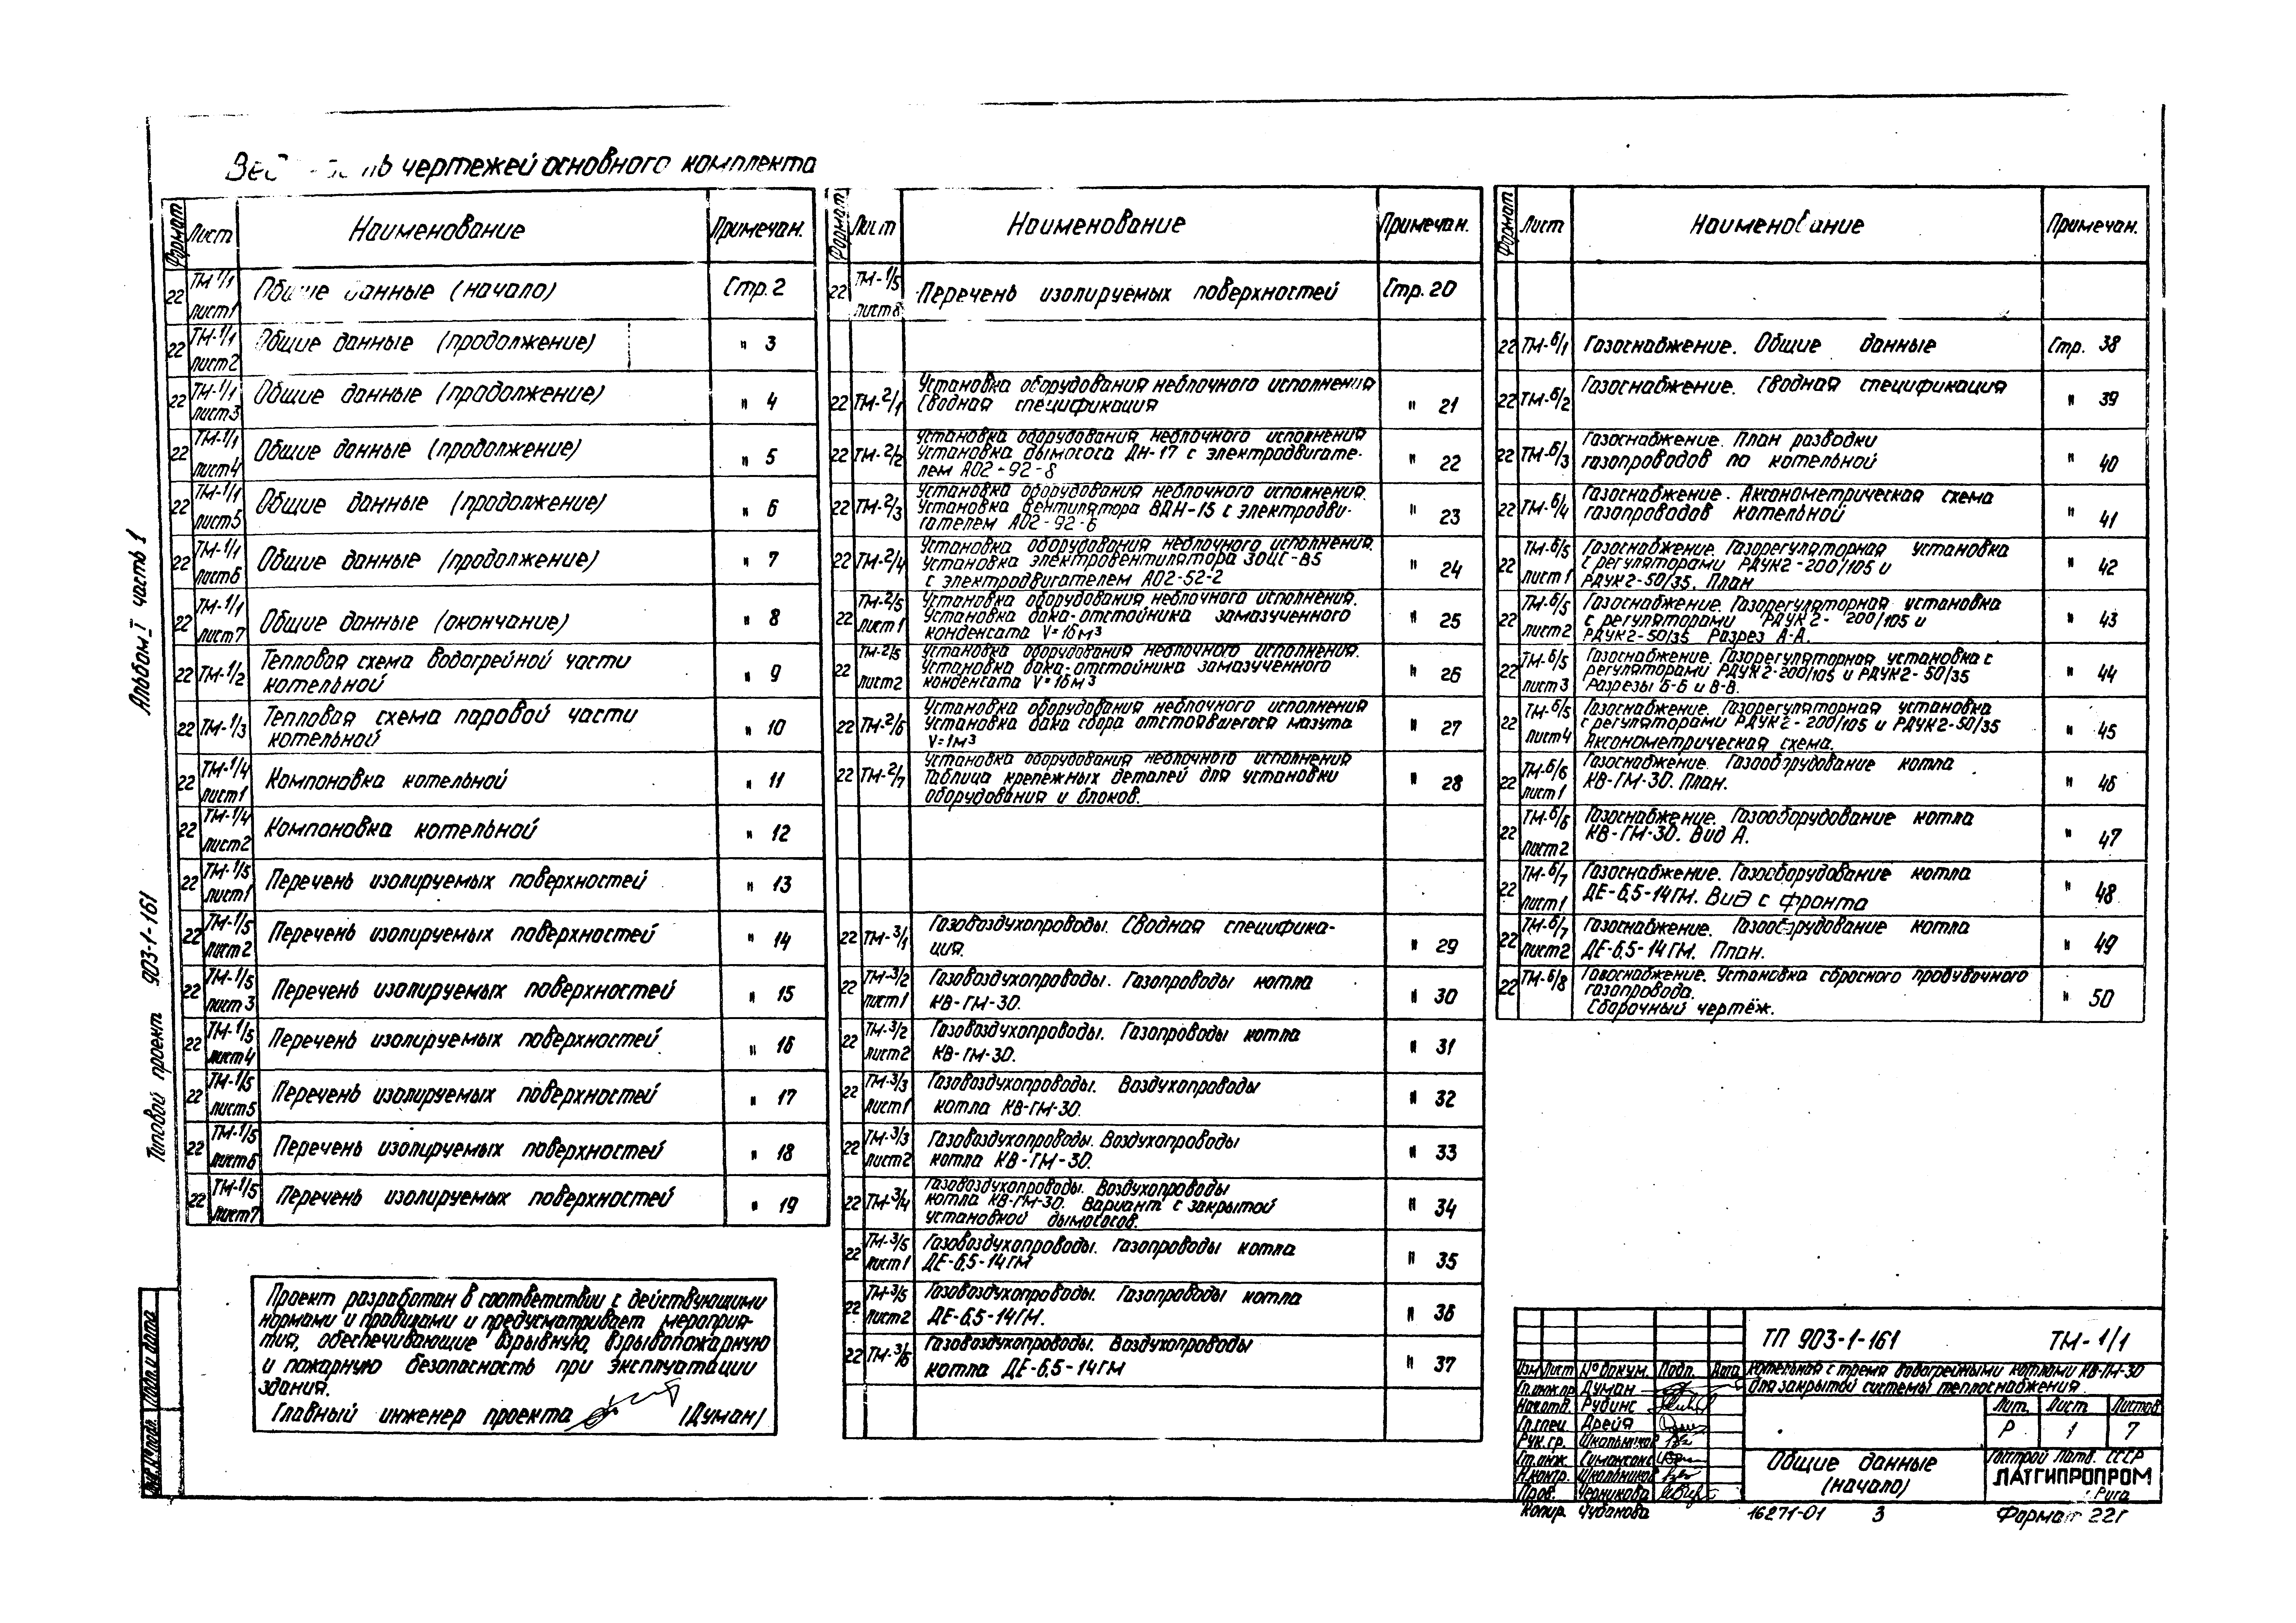 чертежей основного комплекта
Формат Лист Наименование Примечан.
22 ТМ-1/1 лист1 Общие данные (начало) Стр. 2
22 ТМ-1/1 лист2 Общие данные (продолжение) " 3
22 ТМ-1/1 лист3 Общие данные (продолжение) " 4
22 ТМ-1/1 лист4 Общие данные (продолжение) " 5
22 ТМ-1/1 лист5 Общие данные (продолжение) " 6
22 ТМ-1/1 лист6 Общие данные (продолжение) " 7
22 ТМ-1/1 лист7 Общие данные (окончание) " 8
22 ТМ-1/2 Тепловая схема водогрейной части
котельной " 9
22 ТМ-1/3 Тепловая схема паровой части
котельной " 10
22 ТМ-1/4 лист1 Компоновка котельной " 11
22 ТМ-1/4 лист2 Компоновка котельной " 12
22 ТМ-1/5 лист1 Перечень изолируемых поверхностей " 13
22 ТМ-1/5 лист2 Перечень изолируемых поверхностей " 14
22 ТМ-1/5 лист3 Перечень изолируемых поверхностей " 15
22 ТМ-1/5 лист4 Перечень изолируемых поверхностей " 16
22 ТМ-1/5 лист5 Перечень изолируемых поверхностей " 17
22 ТМ-1/5 лист6 Перечень изолируемых поверхностей " 18
22 ТМ-1/5 лист7 Перечень изолируемых поверхностей " 19
Проект разработан в соответствии с действующими
нормами и правилами и предусматривает мероприя-
тия, обеспечивающие взрывную, взрывопожарную
и пожарную безопасность при эксплуатации
здания.
Главный инженер проекта /Думан/
Формат Лист Наименование Примечан.
22 ТМ-1/5 лист8 Перечень изолируемых поверхностей Стр. 20
22 ТМ-2/1 Установка оборудования неблочного исполнения
Сводная спецификация " 21
22 ТМ-2/2 Установка оборудования неблочного исполнения
Установка дымососа ДН-17 с электродвигате-
лем АО2-92-8 " 22
22 ТМ-2/3 Установка оборудования неблочного исполнения.
Установка вентилятора ВДН-15 с электродви-
гателем АО2-92-6 " 23
22 ТМ-2/4 Установка оборудования неблочного исполнения.
Установка электровентилятора 30ЦС-85
с электродвигателем АО2-52-2 " 24
22 ТМ-2/5 лист1 Установка оборудования неблочного исполнения.
Установка бака-отстойника замазученного
конденсата V=16м³ " 25
22 ТМ-2/5 лист2 Установка оборудования неблочного исполнения.
Установка бака-отстойника замазученного
конденсата V=16м³ " 26
22 ТМ-2/6 Установка оборудования неблочного исполнения
Установка бака сбора отстоявшегося мазута
V=1м³ " 27
22 ТМ-2/7 Установка оборудования неблочного исполнения
Таблица крепёжных деталей для установки
оборудования и блоков. " 28
22 ТМ-3/1 Газовоздухопроводы. Сводная специфика-
ция. " 29
22 ТМ-3/2 лист1 Газовоздухопроводы. Газопроводы котла
КВ-ГМ-30. " 30
22 ТМ-3/2 лист2 Газовоздухопроводы. Газопроводы котла
КВ-ГМ-30. " 31
22 ТМ-3/3 лист1 Газовоздухопроводы. Воздухопроводы
котла КВ-ГМ-30. " 32
22 ТМ-3/3 лист2 Газовоздухопроводы. Воздухопроводы
котла КВ-ГМ-30. " 33
22 ТМ-3/4 Газовоздухопроводы. Воздухопроводы
котла КВ-ГМ-30. Вариант с закрытой
установкой дымососов. " 34
22 ТМ-3/5 лист1 Газовоздухопроводы. Газопроводы котла
ДЕ-6,5-14ГМ " 35
22 ТМ-3/5 лист2 Газовоздухопроводы. Газопроводы котла
ДЕ-6,5-14ГМ. " 36
22 ТМ-3/6 Газовоздухопроводы. Воздухопроводы
котла ДЕ-6,5-14ГМ " 37
Формат Лист Наименование Примечан.
22 ТМ-6/1 Газоснабжение. Общие данные Стр. 38
22 ТМ-6/2 Газоснабжение. Сводная спецификация " 39
22 ТМ-6/3 Газоснабжение. План разводки
газопроводов по котельной " 40
22 ТМ-6/4 Газоснабжение. Аксонометрическая схема
газопроводов котельной " 41
22 ТМ-6/5 лист1 Газоснабжение. Газорегуляторная установка
с регуляторами РДУК2-200/105 и
РДУК2-50/35. План " 42
22 ТМ-6/5 лист2 Газоснабжение. Газорегуляторная установка
с регуляторами РДУК2-200/105 и
РДУК2-50/35 Разрез А-А. " 43
22 ТМ-6/5 лист3 Газоснабжение. Газорегуляторная установка с
регуляторами РДУК2-200/105 и РДУК2-50/35
Разрезы Б-Б и В-В. " 44
22 ТМ-6/5 лист4 Газоснабжение. Газорегуляторная установка
с регуляторами РДУК2-200/105 и РДУК2-50/35
Аксонометрическая схема. " 45
22 ТМ-6/6 лист1 Газоснабжение. Газооборудование котла
КВ-ГМ-30. План. " 46
22 ТМ-6/6 лист2 Газоснабжение. Газооборудование котла
КВ-ГМ-30. Вид А. " 47
22 ТМ-6/7 лист1 Газоснабжение. Газооборудование котла
ДЕ-6,5-14ГМ. Вид с фронта " 48
22 ТМ-6/7 лист2 Газоснабжение. Газооборудование котла
ДЕ-6,5-14ГМ. План. " 49
22 ТМ-6/8 Газоснабжение. Установка сбросного продувочного
газопровода.
Сборочный чертёж. " 50
Альбом I часть 1
Типовой проект 903-1-161
Подп. и дата
Инв.№ подл.
ТП 903-1-161 ТМ-1/1
Изм Лист № докум. Подп. Дата
Гл.инж.пр Думан
Нач.отд. Рудинс
Гл.спец. Дрейя
Рук.гр. Школьников
Ст.инж.
Н.контр. Школьников
Пров. Черникова
Котельная с тремя водогрейными котлами КВ-ГМ-30
для закрытой системы теплоснабжения.
Лит. Лист Листов
Р 1 7
Общие данные
(начало)
Госстрой Латв. ССР
ЛАТГИПРОПРОМ
г. Рига
Копир. Чубанова 16271-01 3 Формат 22г